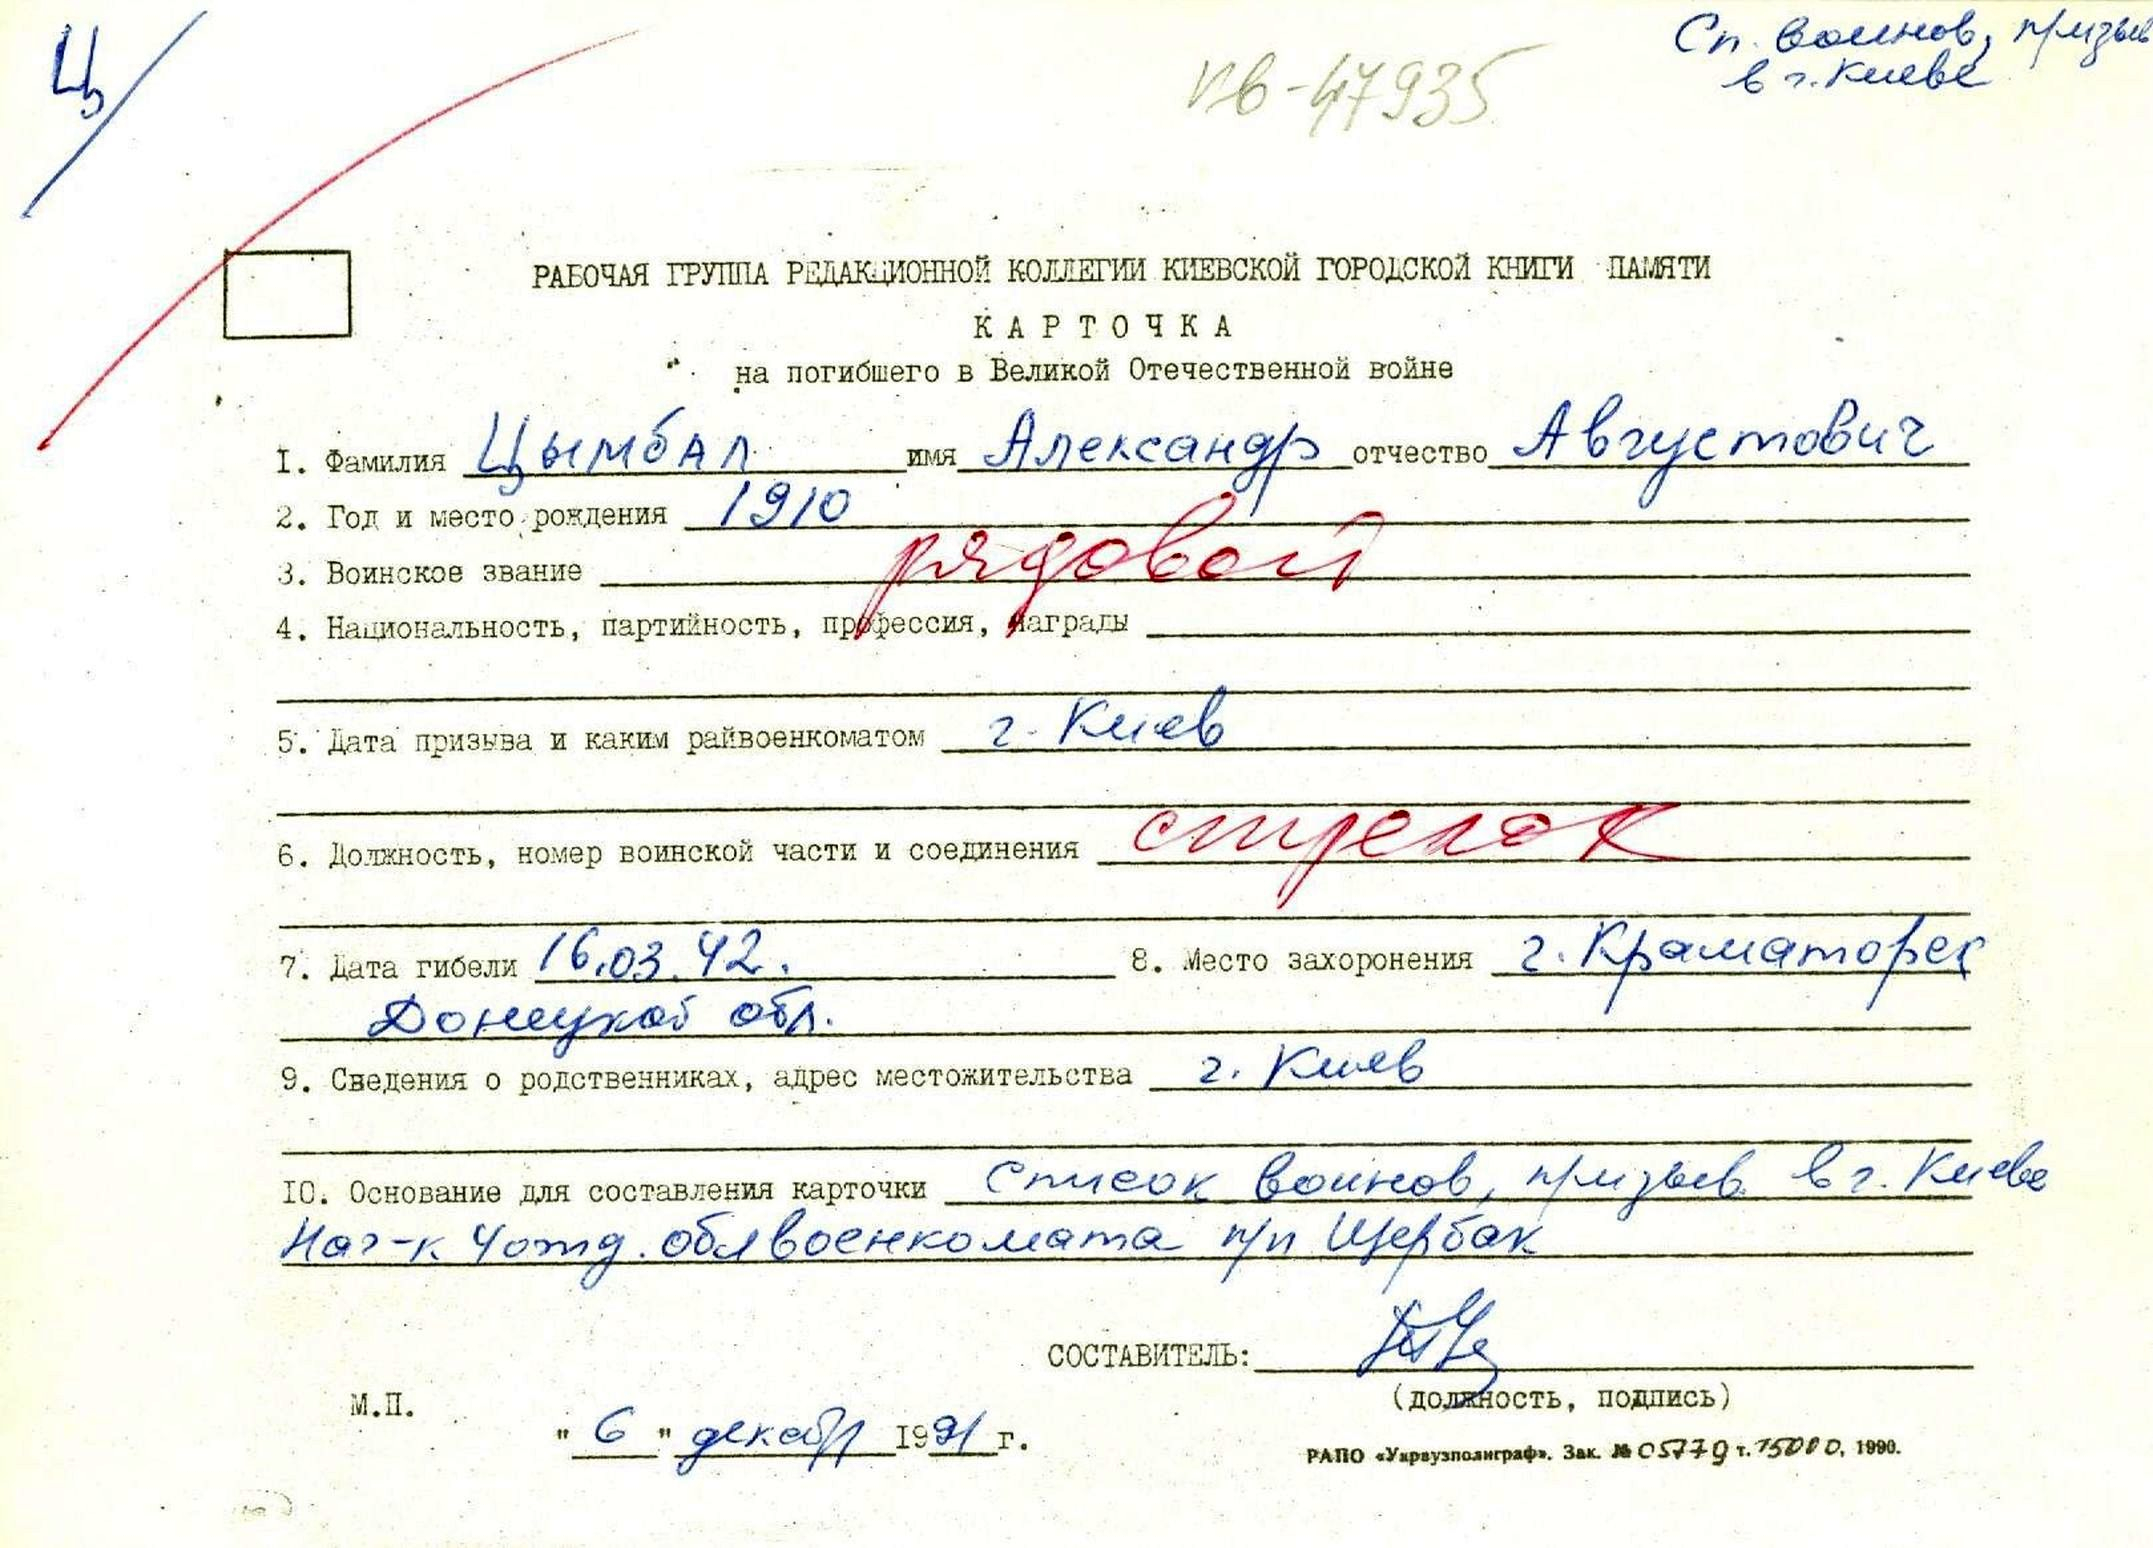 Ц
Сп. воинов, призыв
в г. Киеве
пв-47935
РАБОЧАЯ ГРУППА РЕДАКЦИОННОЙ КОЛЛЕГИИ КИЕВСКОЙ ГОРОДСКОЙ КНИГИ ПАМЯТИ
КАРТОЧКА
на погибшего в Великой Отечественной войне
1. Фамилия Цымбал имя Александр отчество Августович
2. Год и место рождения 1910
3. Воинское звание рядовой
4. Национальность, партийность, профессия, награды
5. Дата призыва и каким райвоенкоматом г. Киев
6. Должность, номер воинской части и соединения стрелок
7. Дата гибели 16.03.42. 8. Место захоронения г. Краматорск
Донецкой обл.
9. Сведения о родственниках, адрес местожительства г. Киев
10. Основание для составления карточки список воинов, призыв. в г. Киеве
Нач-к 4 отд. облвоенкомата п/п Щербак
СОСТАВИТЕЛЬ:
(должность, подпись)
М.П.
"6" декабр 1991 г.
РАПО «Укрвузполиграф». Зак. № 05779 т. 15000, 1990.